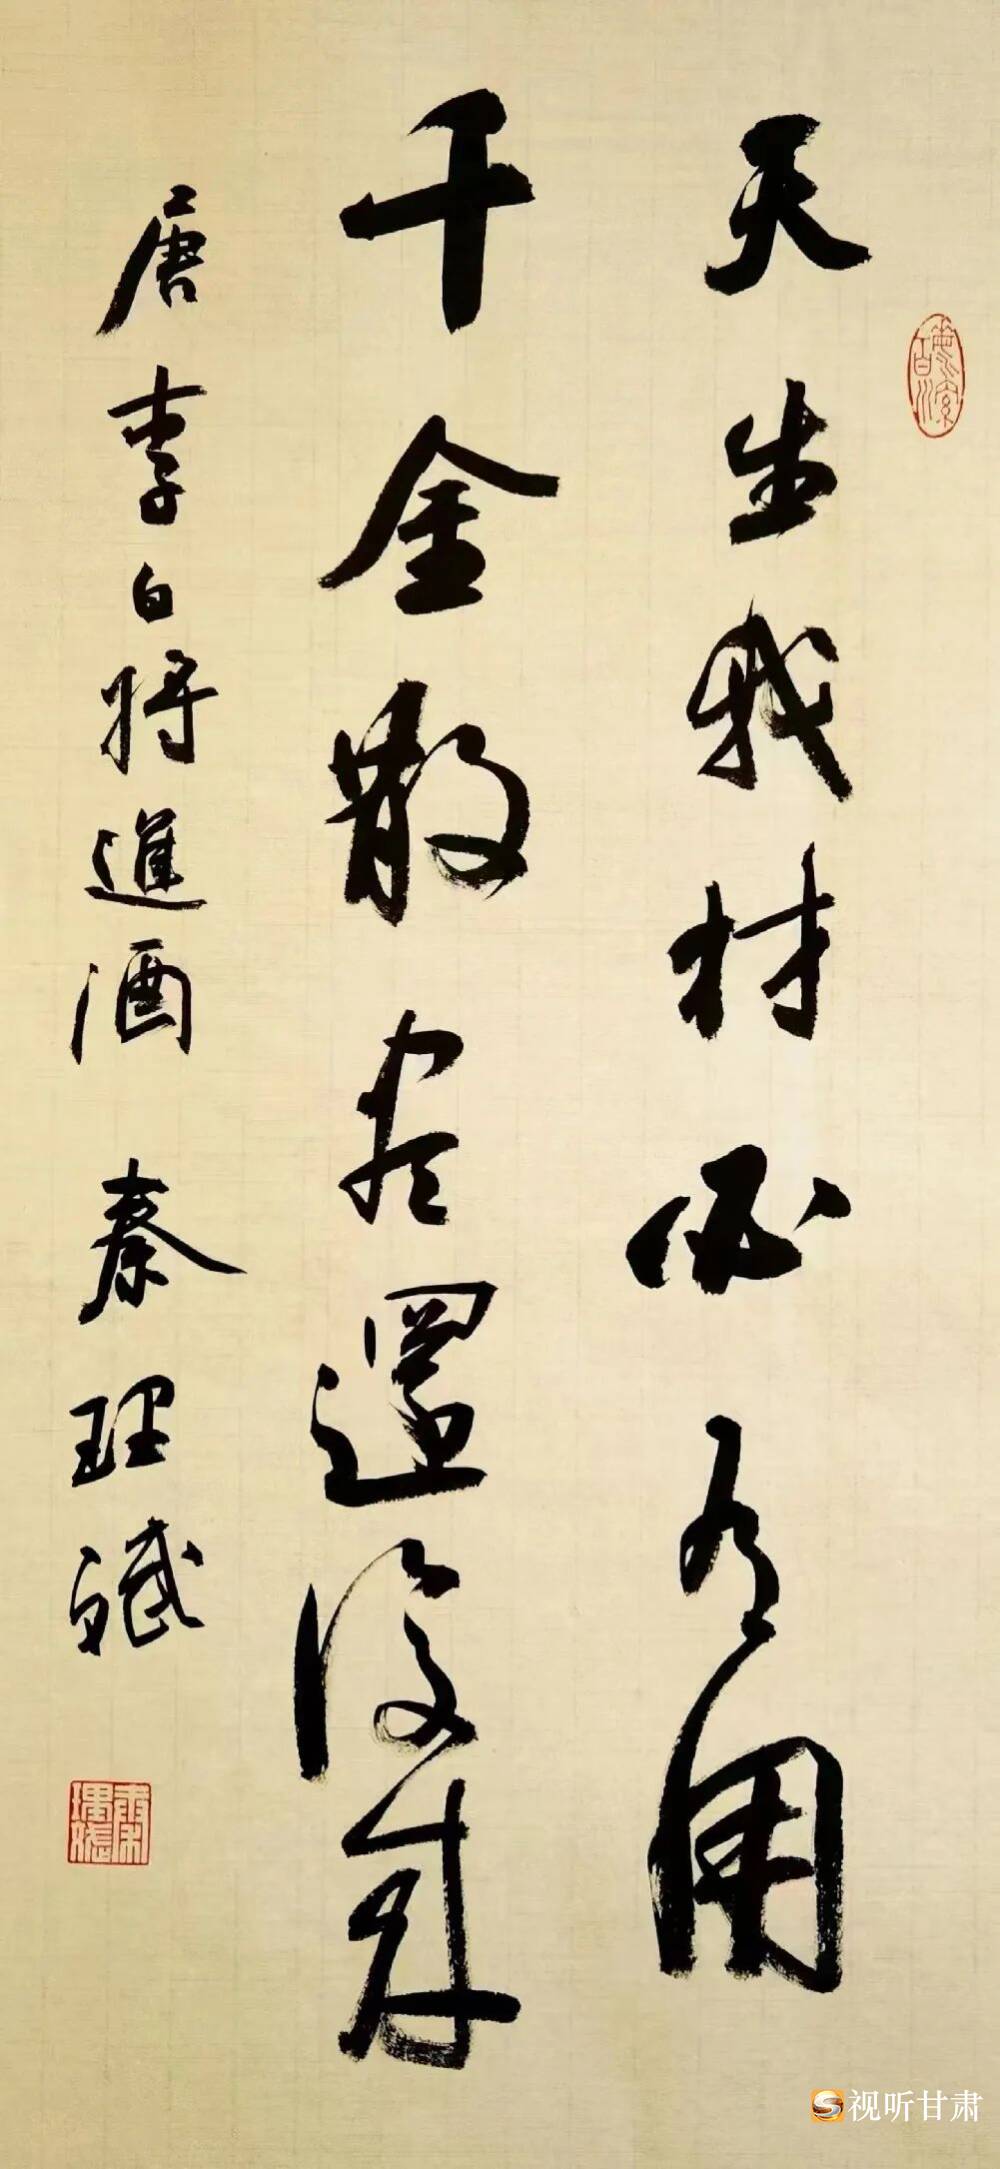 天生我材必有用
千金散尽還復来
唐李白将進酒 秦理斌
视听甘肃